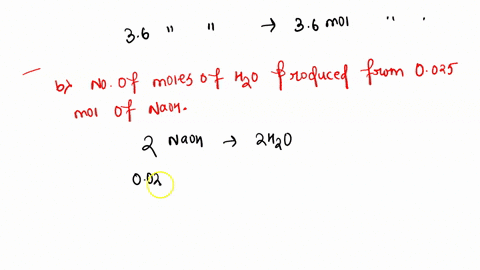 3.6 " " → 3.6 mol " .
b) No. of moles of H2O produced from 0.025
mol of NaOH.
2 NaOH → 2H2O
0.02